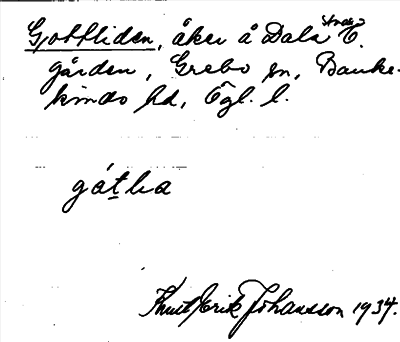 Gottliden, åker å Dala Södra E.
gården, Grebo sn, Banke-
kinds hd, Ögl. l.
gátha
Knut Erik Johansson 1934.